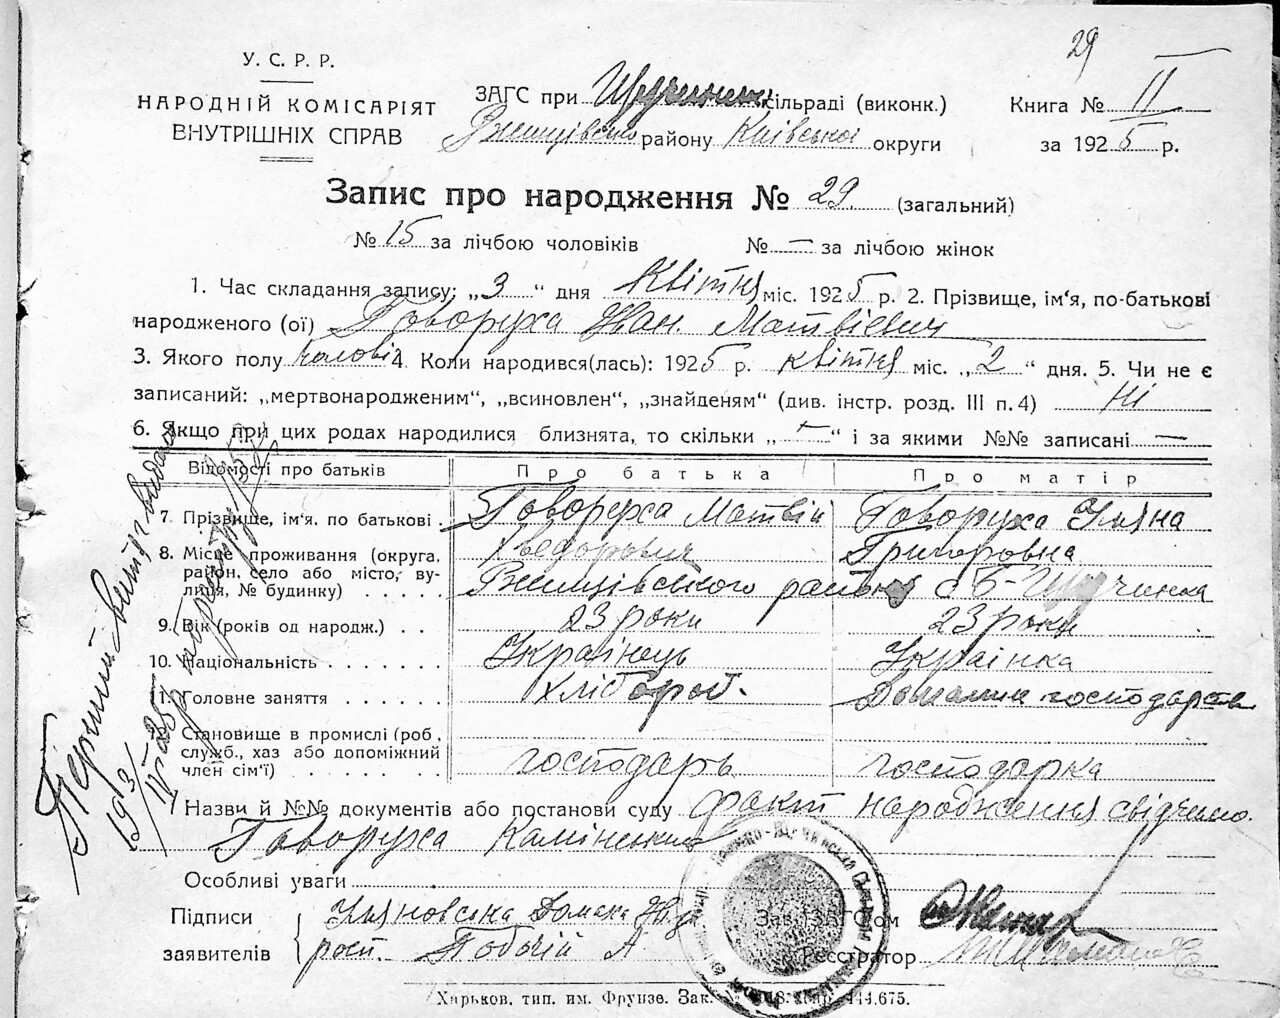 29
У. С. Р. Р.
НАРОДНІЙ КОМІСАРІЯТ
ВНУТРІШНІХ СПРАВ
ЗАГС при сільраді (виконк.)
району Київської округи
Книга № II
за 1925 р.
Запис про народження № 29. (загальний)
№ 15 за лічбою чоловіків № — за лічбою жінок
1. Час складання запису: „3“ дня Квітня міс. 1925 р. 2. Прізвище, ім'я, по-батькові
народженого (ої) Говоруха Іван. Матвієвич
3. Якого полу чоловіч 4. Коли народився(лась): 1925 р. квітня міс. „2“ дня. 5. Чи не є
записаний: „мертвонародженим“, „всиновлен“, „знайденям“ (див. інстр. розд. III п. 4) Ні
6. Якщо при цих родах народилися близнята, то скільки „—“ і за якими №№ записані —
Відомості про батьків Про батька Про матір
7. Прізвище, ім'я, по батькові. Говоруха Матвій Говоруха Уляна
Хведорович Григоровна
8. Місце проживання (округа, район, село або місто, вулиця, № будинку) . . . . .
Ржищівського району с Б-Щучинка
9. Вік (років од народж.) . . 23 роки 23 роки
10. Національність . . . . . . . Українець Українка
11. Головне заняття . . . . . . Хлібороб. Домашнє господарств
12. Становище в промислі (роб., служб., хаз або допоміжний член сім'ї) . . . . . . господарь господарка
Назви й №№ документів або постанови суду факт народження свідчено.
Говоруха
Особливі уваги
Підписи
заявителів
Зав. ЗАГС'ом
Реєстратор
Перший витяг видано
193
Харьков, тип. им. Фрунзе. Зак. №